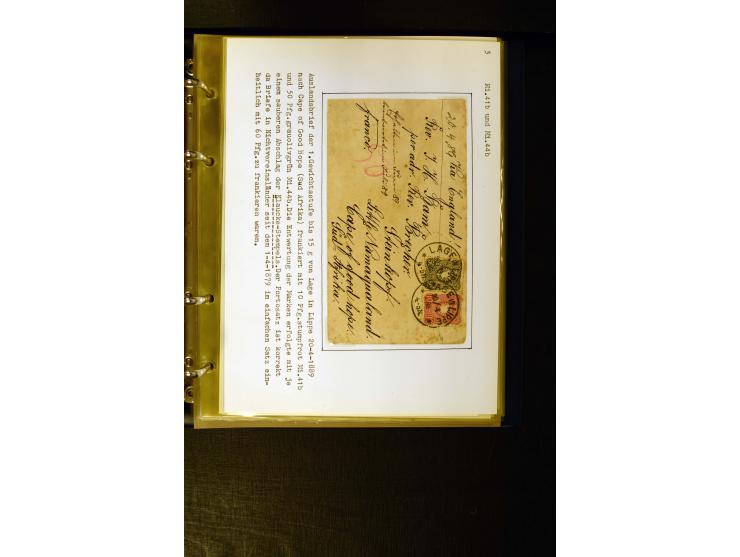 3
Mi.41b und Mi.44b
20. 4. 89 Via England!
Rev. J. H. Bam.
per adr. Rev. Brecher
Steinkopf.
Little Namaqualand.
Cape of good hope.
Süd Afrika!
franco.
LAGE
Auslandsbrief der 1.Gewichtsstufe bis 15 g von Lage in Lippe 20-4-1889
nach Cape of Good Hope (Süd Afrika) frankiert mit 10 Pfg.stumpfrot Mi.41b
und 50 Pfg.grauolivgrün Mi.44b.Die Entwertung der Marken erfolgte mit je
einem sauberen Abschlag der Klaucke-Stempels.Der Portosatz ist korrekt
da Briefe in Nichtvereinsländer seit dem 1-4-1879 im einfachen Satz ein-
heitlich mit 60 Pfg.zu frankieren waren.